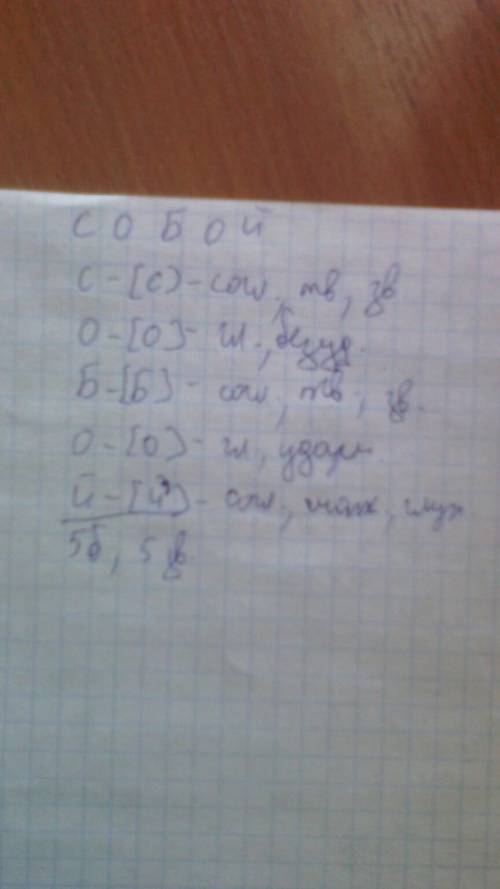 СОБОЙ
С-[С)-согл, тв, зв
О-[О]-гл., безуд.
Б-[Б]-согл, тв., зв.
О-[О]-гл, ударн.
Й-[Й']-согл., мягк, глух
5б, 5 зв.